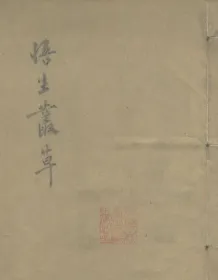 悟生叢草